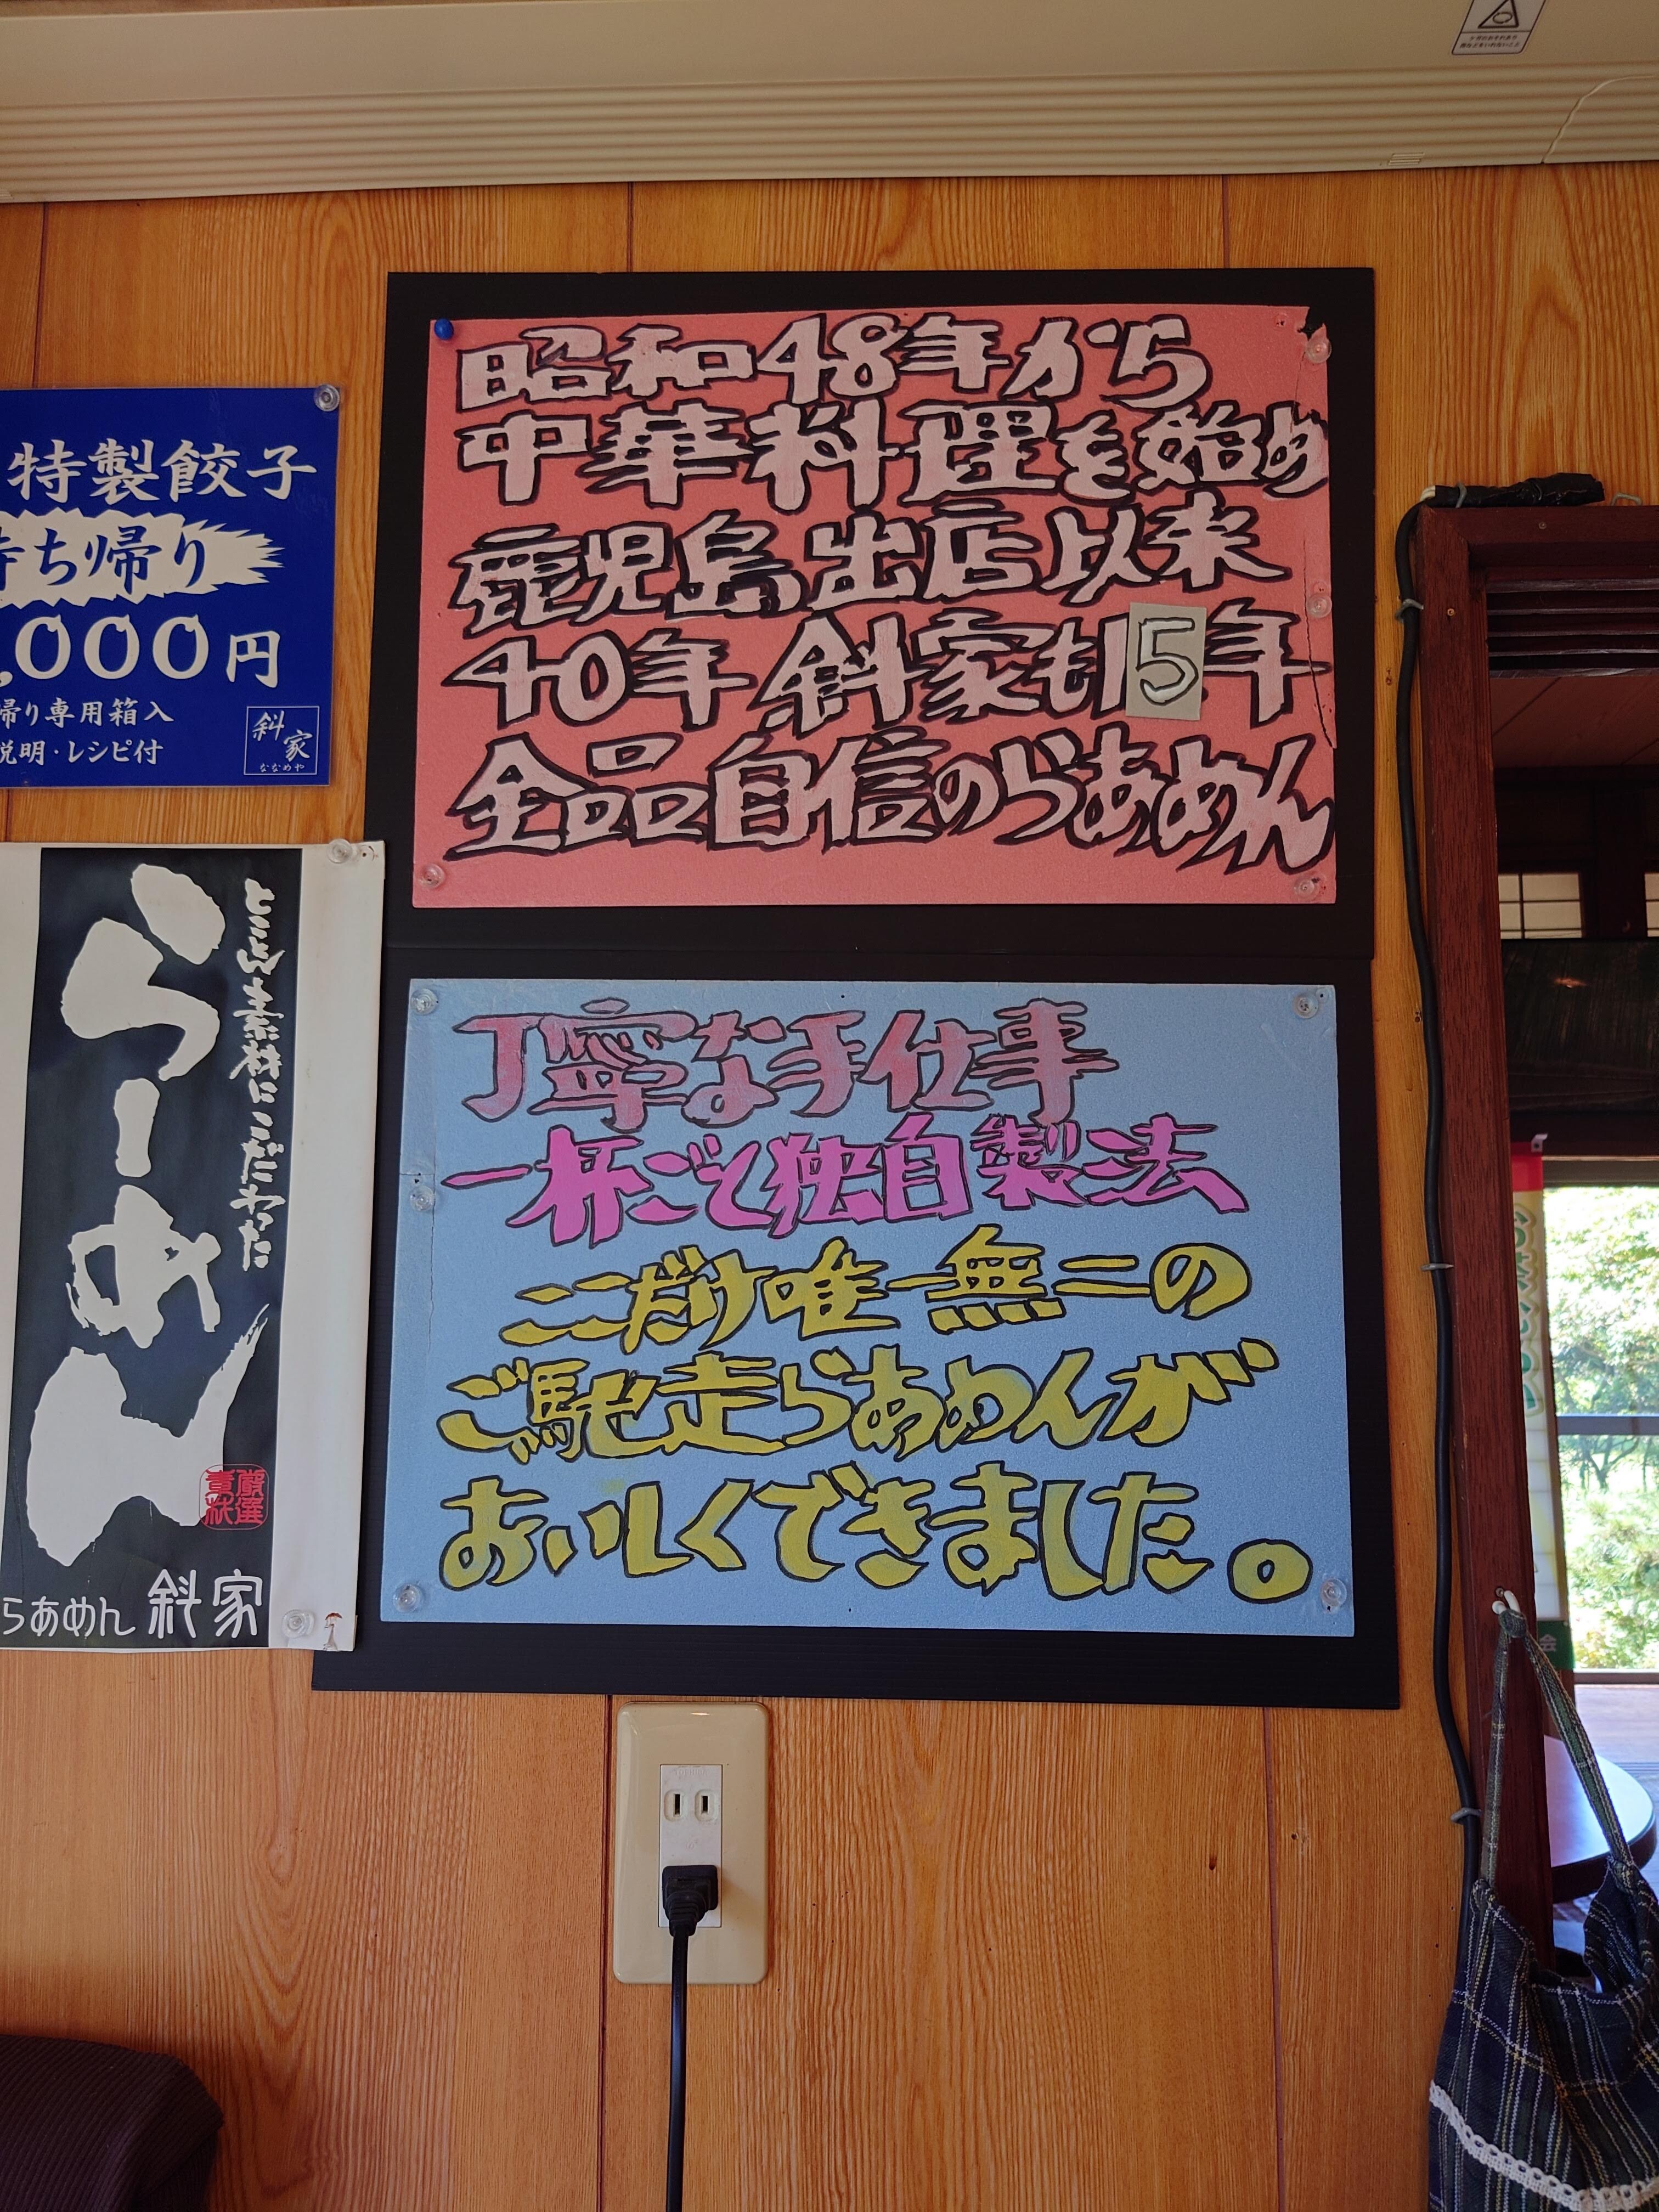 特製餃子
持ち帰り
,000円
帰り専用箱入
説明・レシピ付
斜家
ななめや
とことん素材にこだわった
らーめん
厳選
らあめん 斜家
昭和48年から
中華料理を始め
鹿児島出店以来
40年 斜家も15年
全品自信のらあめん
丁寧な手仕事
一杯ごと独自製法
ここだけ唯一無二の
ご馳走らあめんが
おいしくできました。
会